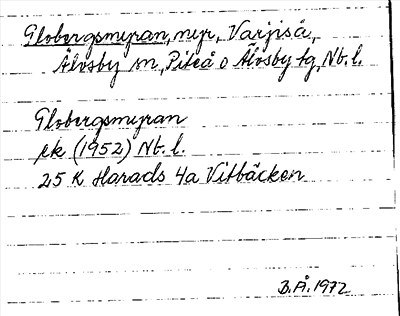 Globergsmyran, myr, Varjiså,
Älvsby sn, Piteå o Älvsby tg, Nb. l.
Globergsmyran
ek (1952) Nb. l.
25 K Harads 4a Vitbäcken
B.Å. 1972